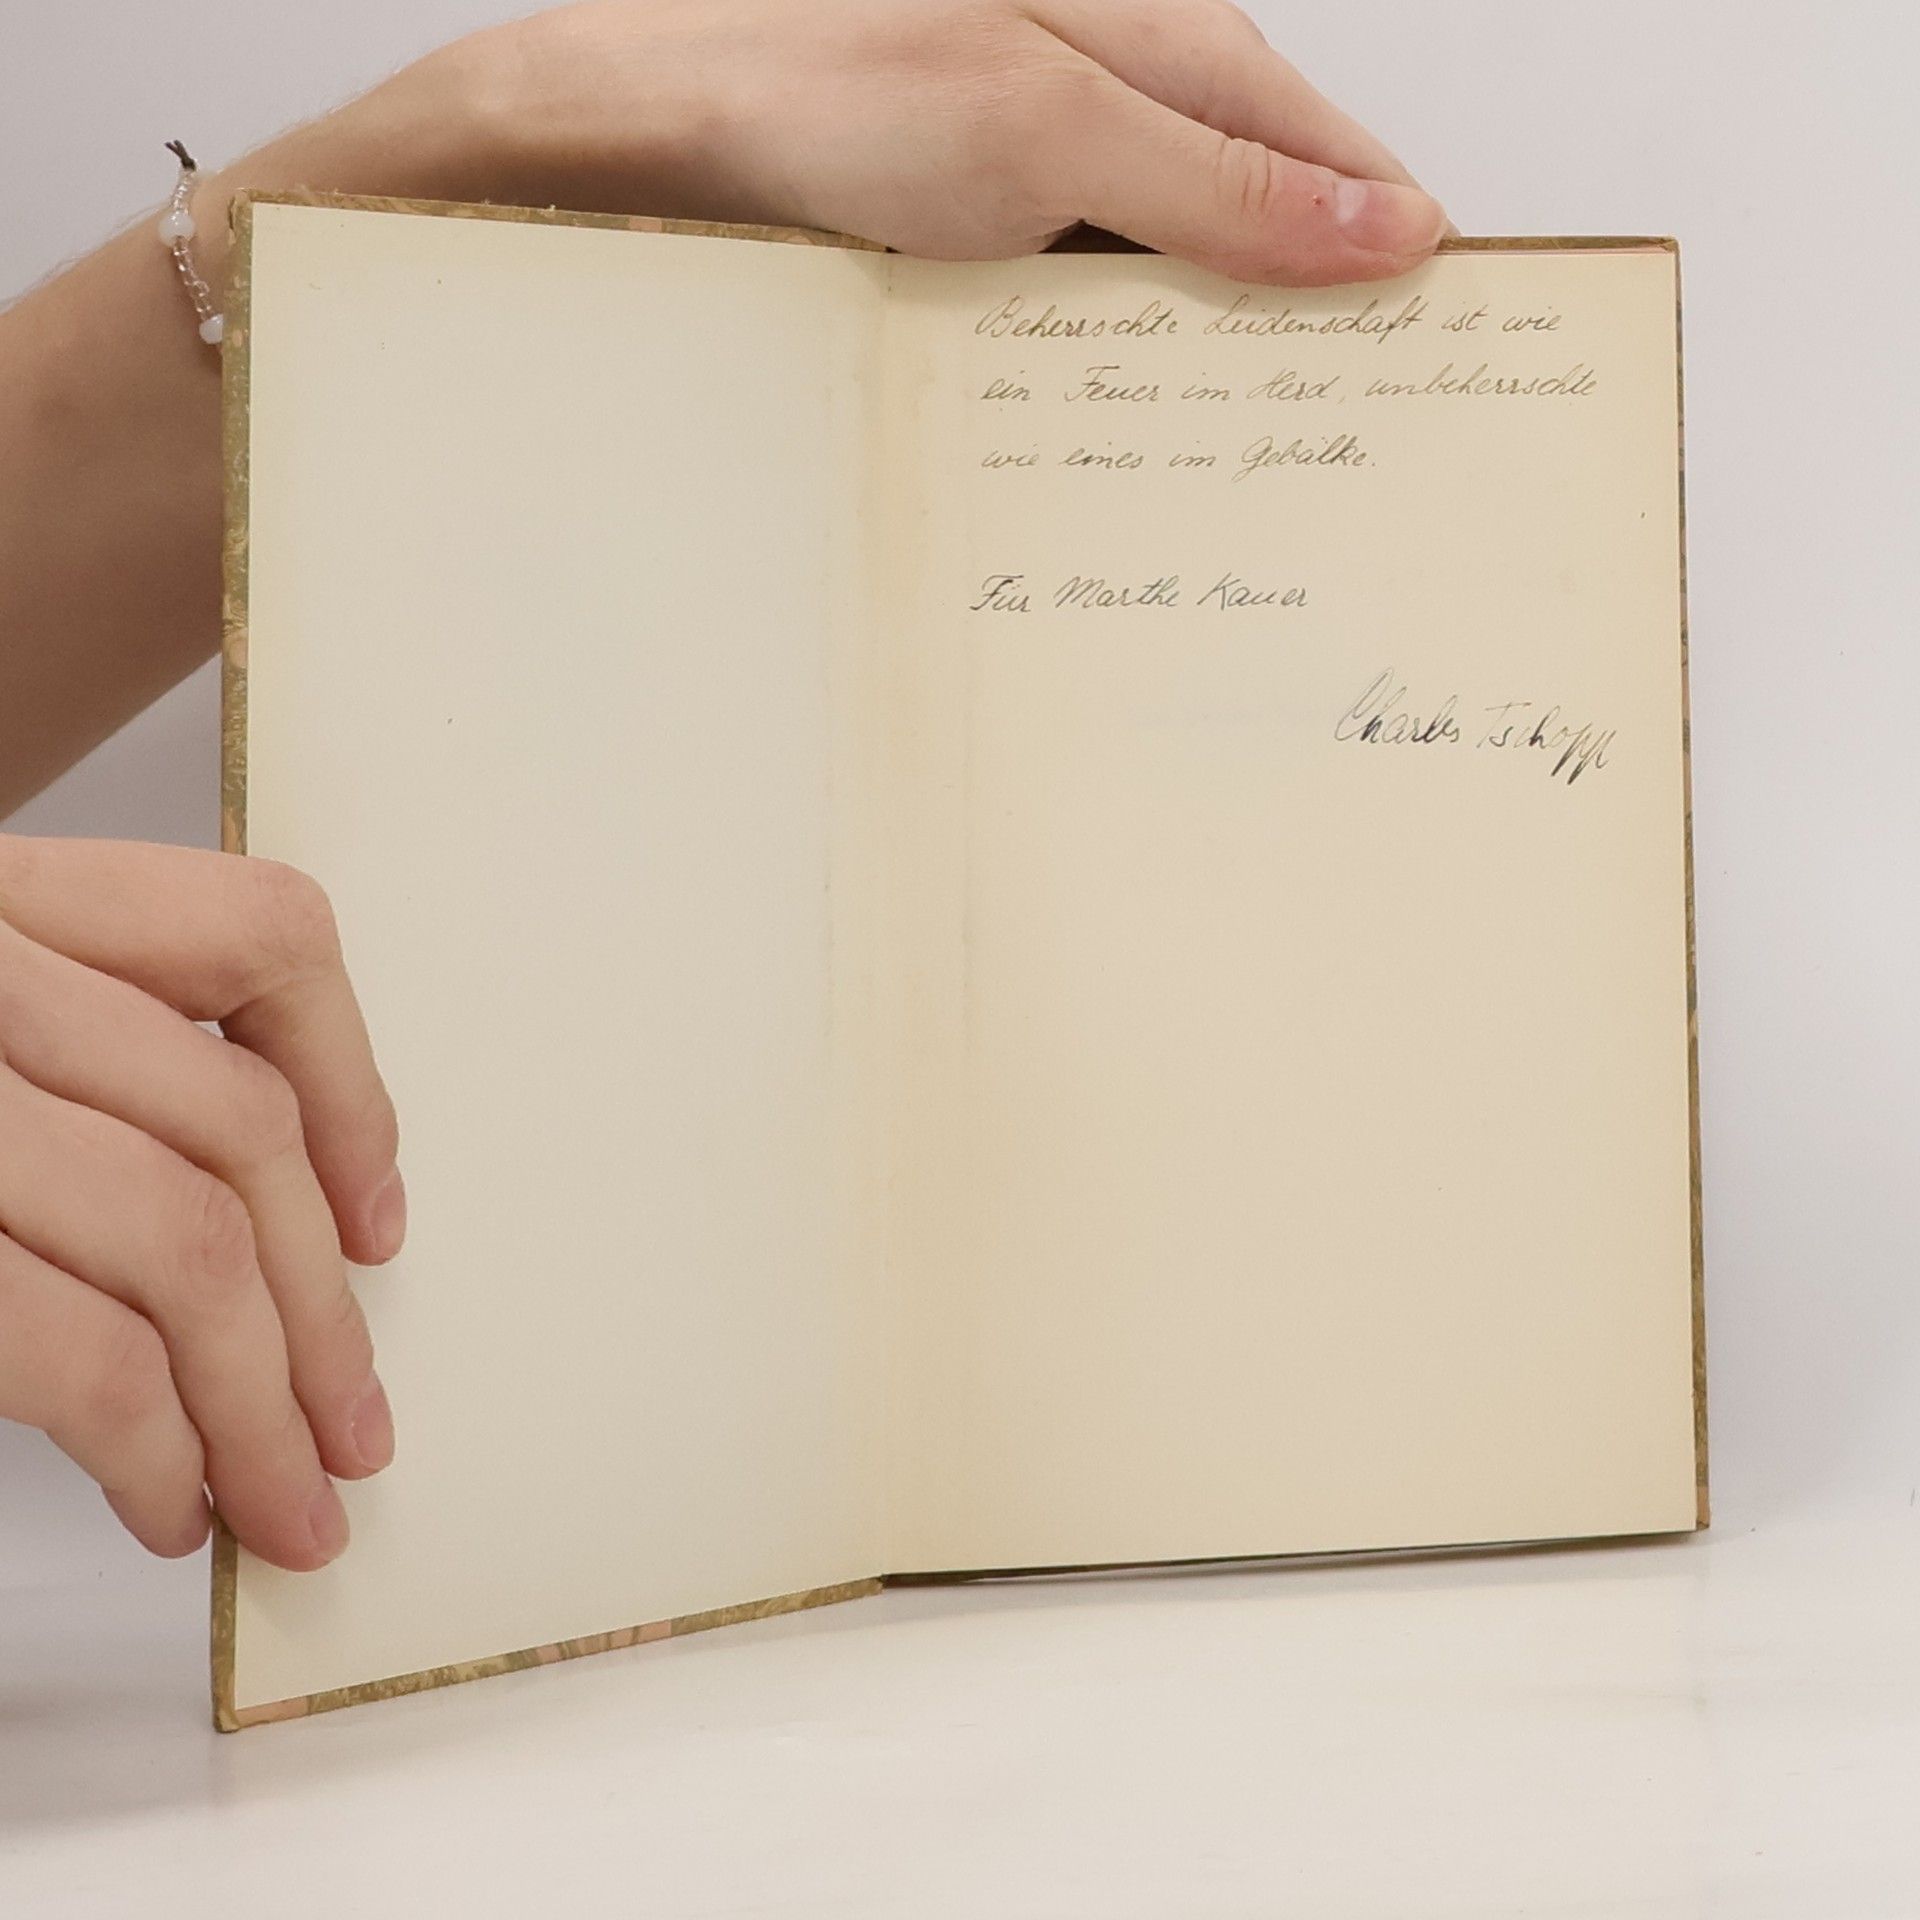 Beherrschte Leidenschaft ist wie
ein Feuer im Herd, unbeherrschte
wie eines im Gebälke.
Für Marthe Kauer
Charles Tschopp